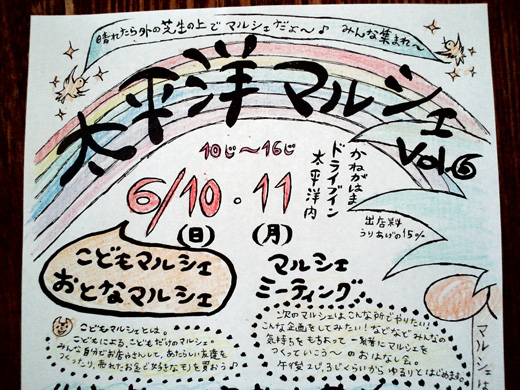 晴れたら外の芝生の上でマルシェだよ〜♪ みんな集まれ〜
太平洋マルシェ
Vol.6
10じ〜16じ
6/10・11
(日) (月)
かねがはま
ドライブイン
太平洋内
出店料
うりあげの15%
こどもマルシェ
おとなマルシェ
マルシェ
ミーティング
こどもマルシェとは。
こどもによる、こどもだけのマルシェ
みんな自分でお店やさんして、あたらしい友達を
つくったり、売れたお金で好きなモノを買おう♪
次のマルシェはこんな所でやりたい!
こんな企画をしてみたい!などなどみんなの
気持ちをもちよって一緒にマルシェを
つくっていこう〜のおはなし会。
午後2じ、3じくらいからゆるりとはじめます。
マルシェ